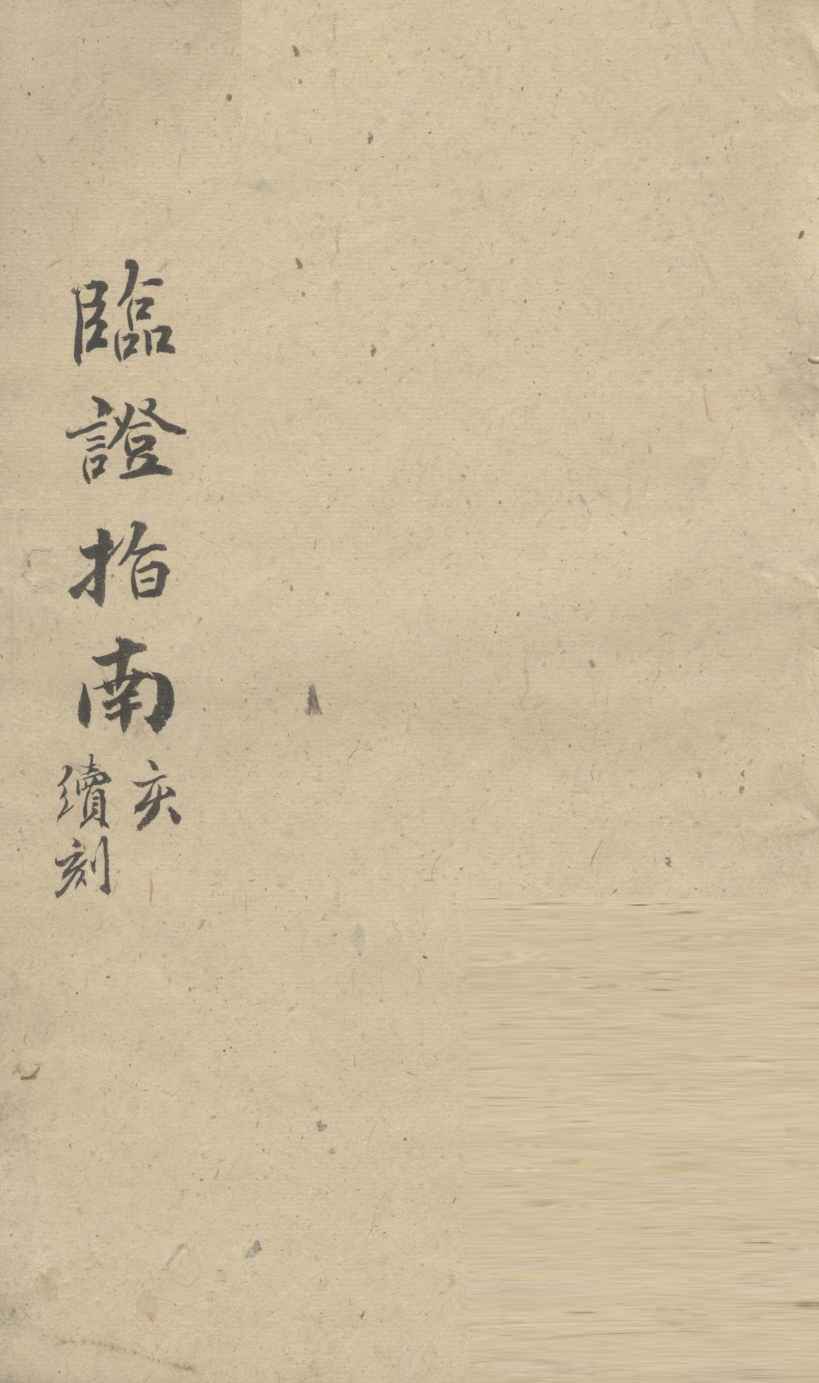 臨證指南
亥
續刻